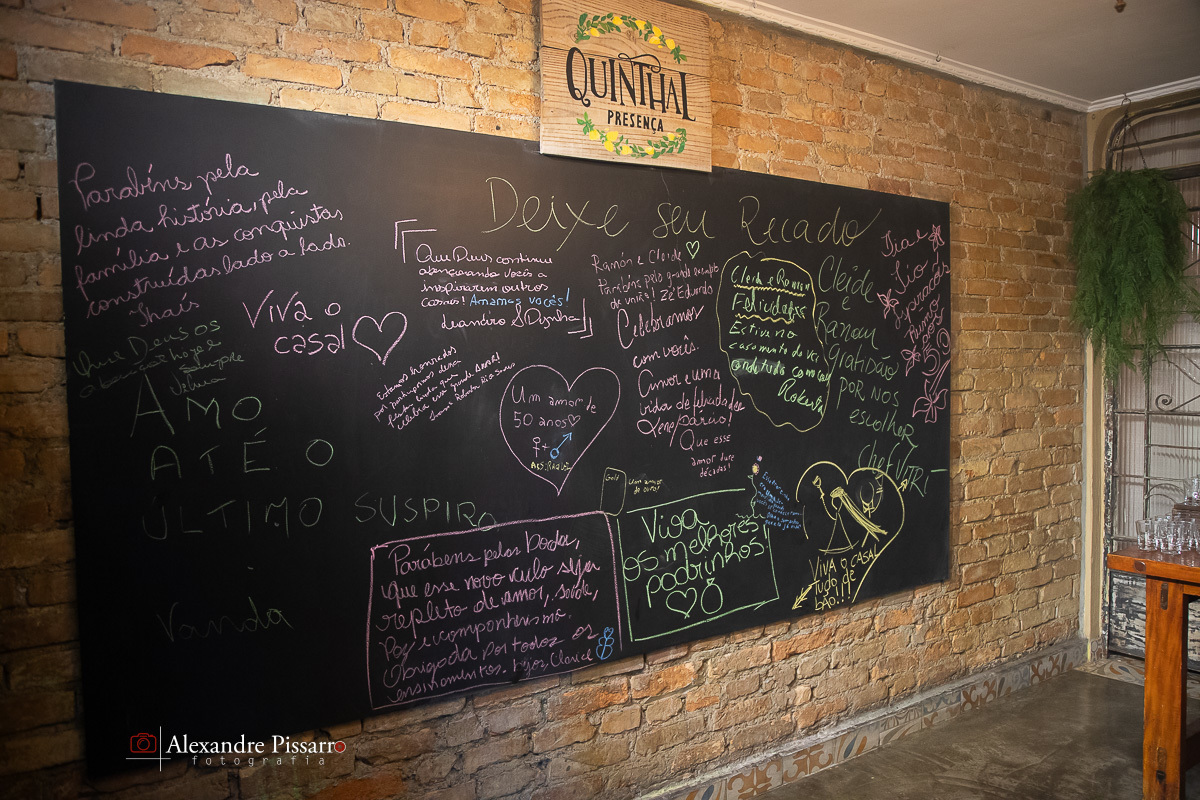 QUINTHAL
PRESENÇA
Deixe seu Recado
Parabéns pela
linda história, pela
família e as conquistas
construídas lado a lado.
Thaís
Que Deus os
abençoe hoje e
sempre
VIVA O
CASAL
AMO
ATÉ O
ÚLTIMO SUSPIRO
Vanda
Que Deus continue
abençoando vocês e
inspirarem outros
casais! Amamos vocês!
Leandro e Dijinha
Estamos honrados
por participarmos dessa
linda festa que
celebra esse grande AMOR!
Um amor de
50 anos
Ramón e Cleide
Parabéns pelo grande exemplo
de vocês! Zé Eduardo
Celebramos
com vocês.
Amor e uma
vida de felicidades
Que esse
amor dure
décadas!
Cleide e Ramon
Felicidades
Estive no
casamento de vcs
Roberta
Cleide
e
Ramon
Gratidão
POR NOS
escolher
Chef VITRI
Tia e
Tio
50
Parabéns pelas Bodas,
que esse novo ciclo seja
repleto de amor, saúde,
Paz e companheirismo.
Obrigada por todos os
ensinamentos. bejos, Clarice
Golf
Viva
os melhores
padrinhos!
VIVA O CASAL
TUDO DE
BÃO!!!
Alexandre Pissarro
fotografia